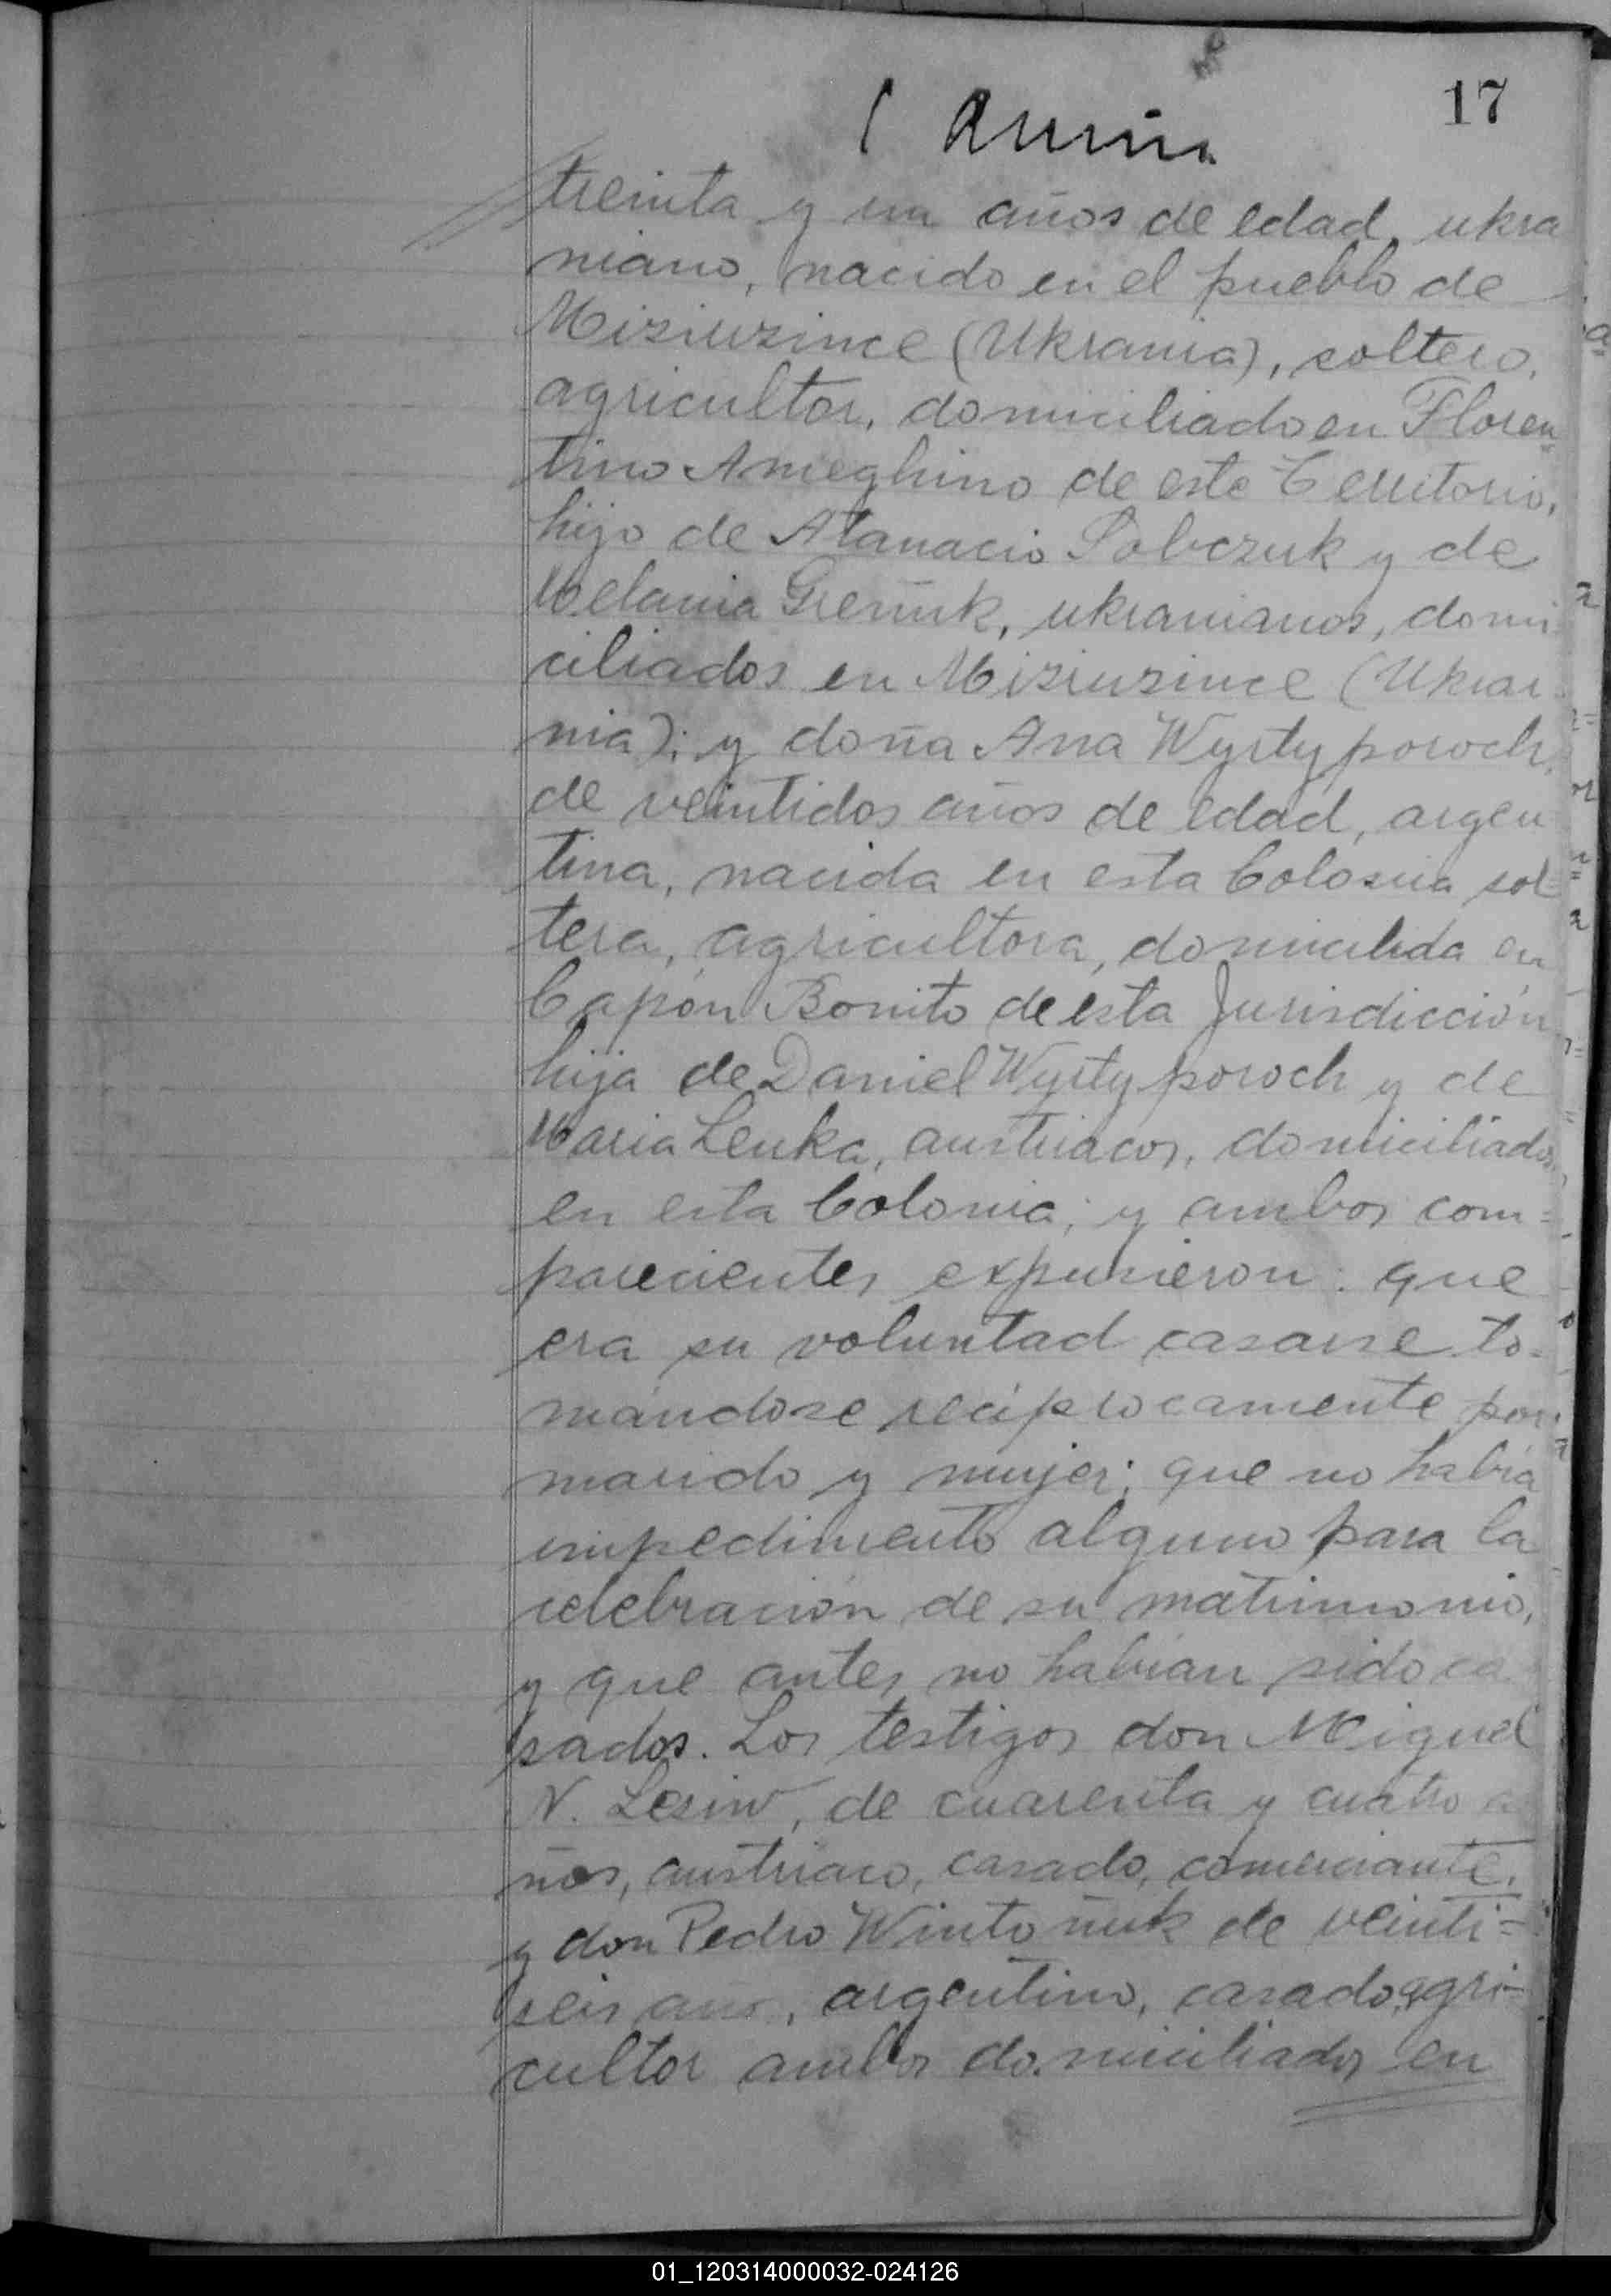 17
treinta y un años de edad, ukra
niano, nacido en el pueblo de
Misiurince (Ukrania), soltero,
agricultor, domiciliado en Floren=
tino Ameghino de este Territorio,
hijo de Atanacio Sobczuk y de
Melania Greñuk, ukranianos, domi
ciliados en Misiurince (Ukra
nia); y doña Ana Wystyporoch,
de veintidos años de edad, argen
tina, nacida en esta Colonia sol=
tera, agricultora, domicilida en
Capón Bonito de esta Jurisdicción
hija de Daniel Wystyporoch y de
Maria Leuka, austriacos, domiciliados,
en esta Colonia; y ambos com=
parecientes expusieron: que
era su voluntad casarse to=
mándose recíprocamente por
marido y mujer; que no había
impedimento alguno para la
celebración de su matrimonio,
y que antes no habían sido ca
sados. Los testigos don Miguel
N. Lesiw, de cuarenta y cuatro a
ños, austriaco, casado, comerciante,
y don Pedro Wintoñuk de veinti=
seis años, argentino, casado, agri=
cultor ambos domiciliados en
01_120314000032-024126